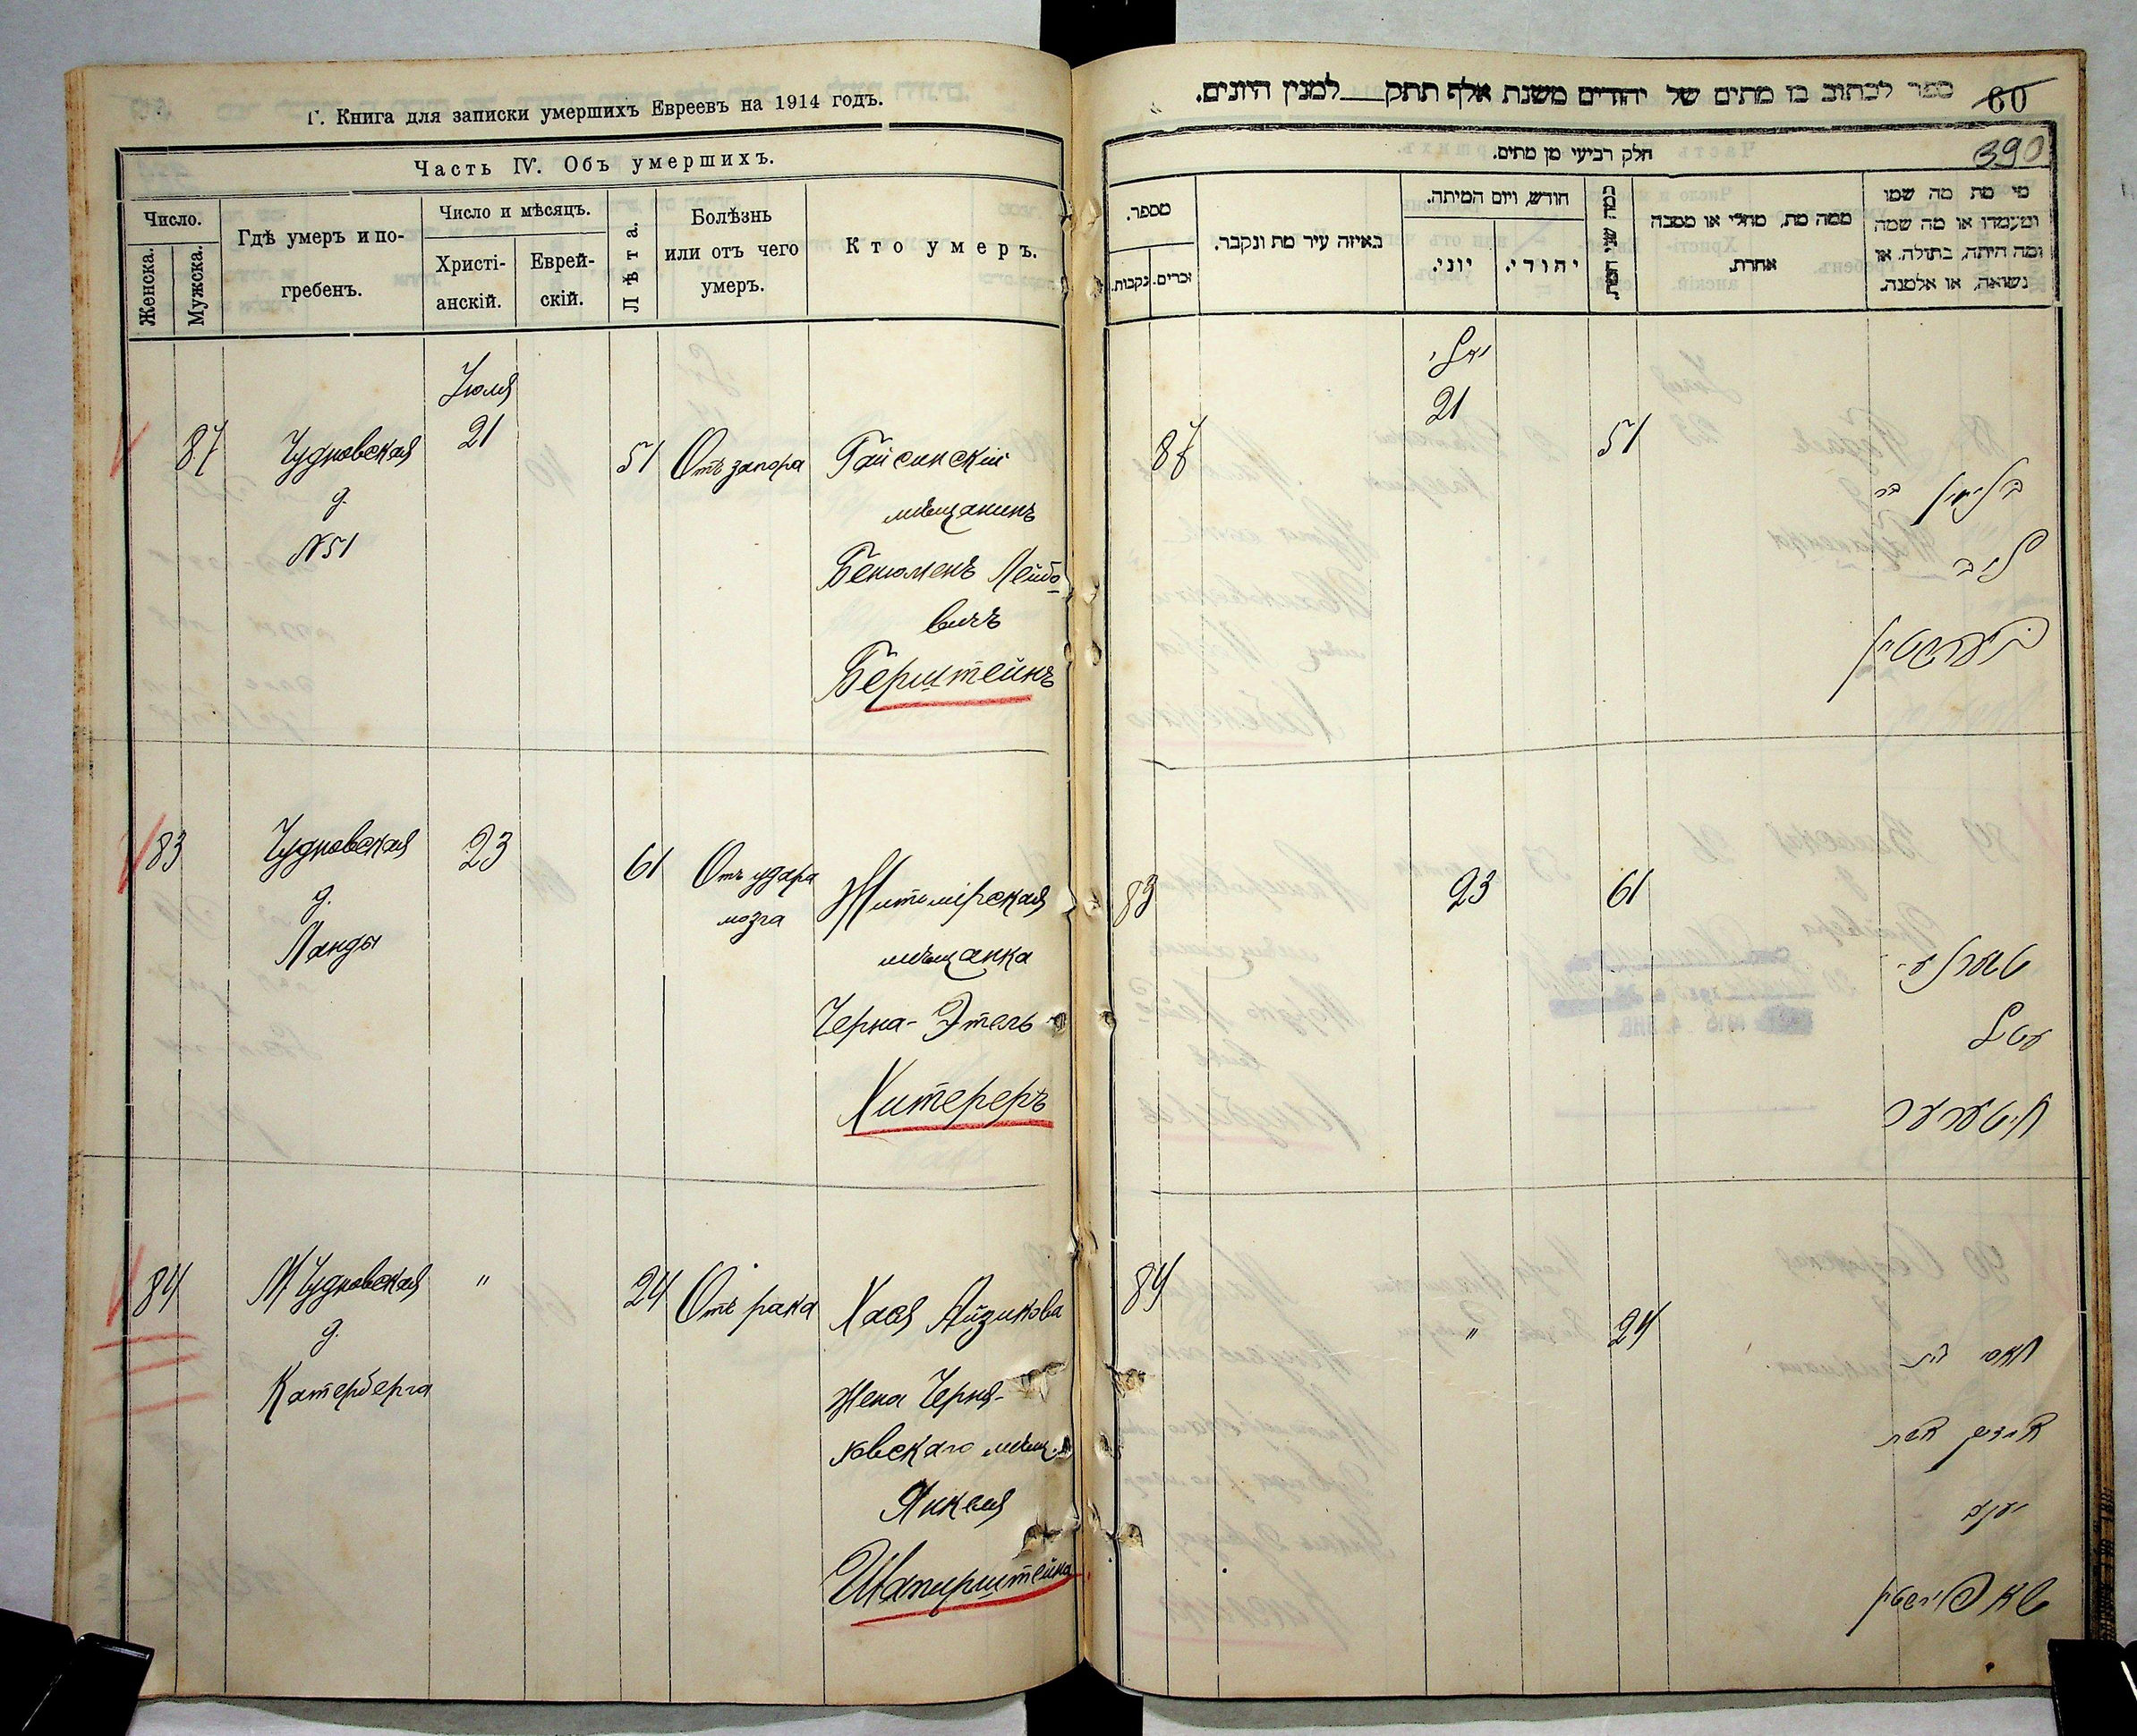 Г. Книга для записки умершихъ Евреевъ на 1914 годъ.
Часть IV. Объ умершихъ.
Число.
Женска.
Мужска.
Гдѣ умеръ и по-
гребенъ.
Число и мѣсяцъ.
Христі-
анскій.
Еврей-
скій.
Лѣта.
Болѣзнь
или отъ чего
умеръ.
Кто умеръ.
Іюля
87 Чудновская 21 51 Отъ запора Гайсинскій
д. мѣщанинъ
№51 Бенюменъ Лейбо
вичъ
Берштейнъ
83 Чудновская 23 61 Отъ удара Житомірская
д. мозга мѣщанка
Ланды Черна-Этель
Хитереръ
84 М Чудновская " 24 Отъ рака Хася Айзикова
д. жена Черня-
Катерберга ховскаго мѣщ.
Янкеля
Шапирштейна
ספר לכתוב בו מתים של יהודים משנת אלף תתק___למנין היונים.
60
390
חלק רביעי מן מתים.
מספר.
זכרים.
נקבות.
באיזה עיר מת ונקבר.
חודש, ויום המיתה.
יוני.
יהודי.
כמה שני המת.
ממה מת, מחלי או מסבה
אחרת.
מי מת מה שמו
ומעמדו או מה שמה
ומה היתה, בתולה. או
נשואה, או אלמנה.
יולי
87 21 51
בנימין בר
ליב
בערשטיין
83 23 61
טשערנע
עטל
חיטערער
84 " 24
חאסי בת
אייזיק אשת
יעקב
שאפירשטיין